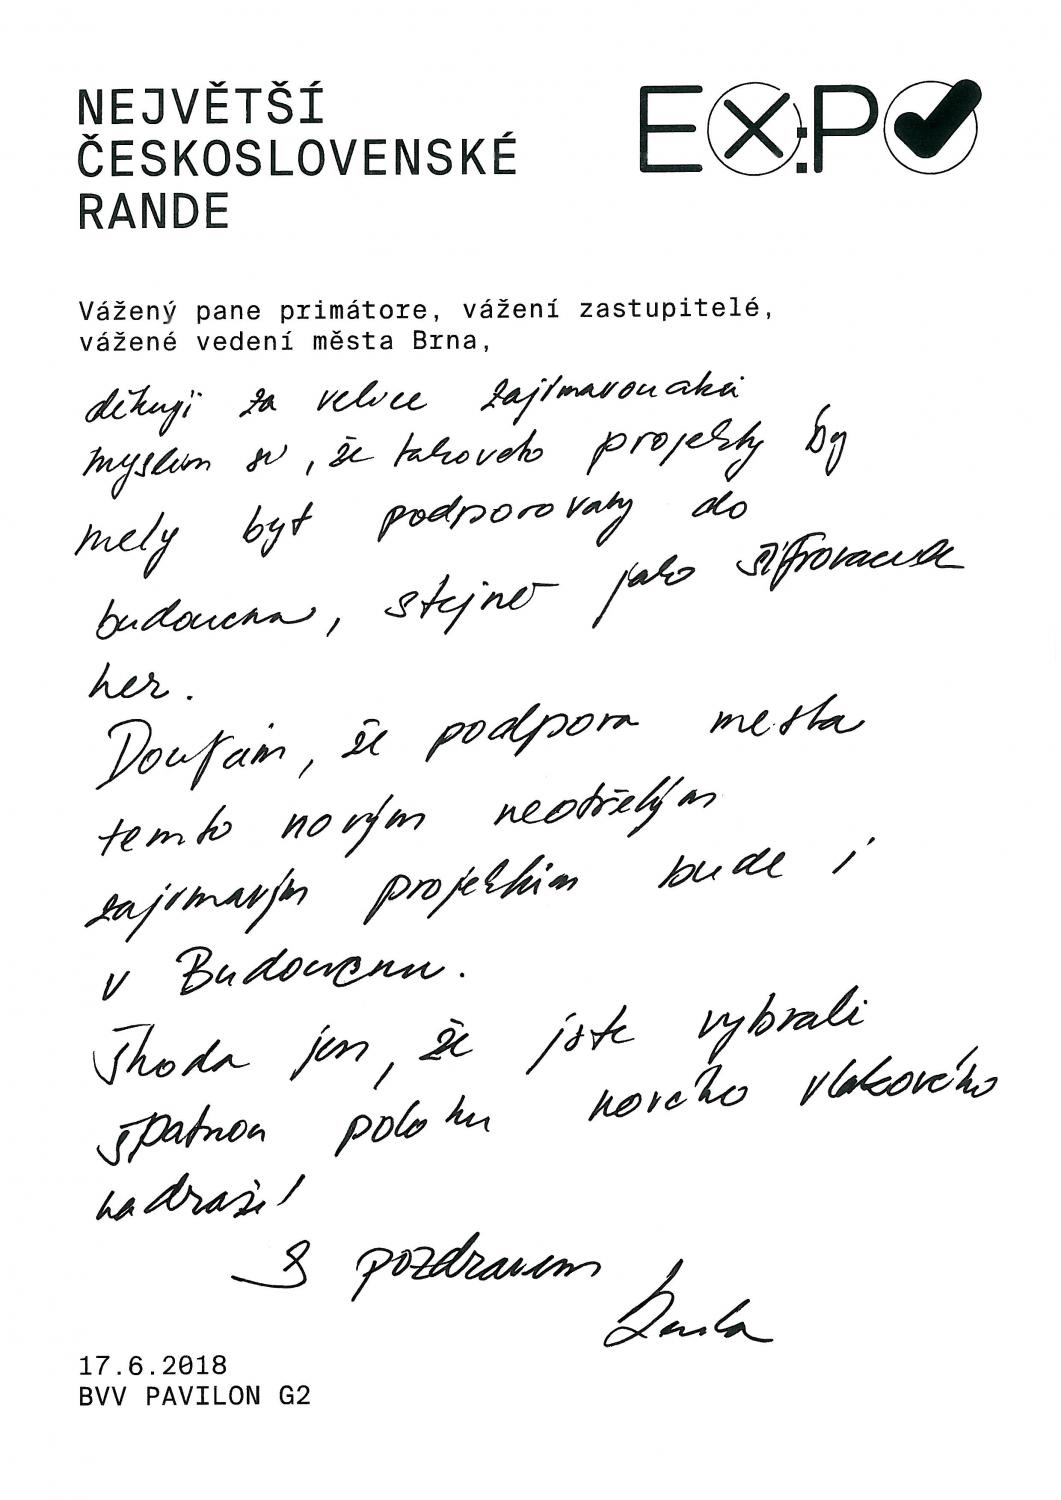 NEJVĚTŠÍ
ČESKOSLOVENSKÉ
RANDE
EX:PO
Vážený pane primátore, vážení zastupitelé,
vážené vedení města Brna,
děkuji za velice zajímavou akci
myslím si, že takoveto projekty by
mely byt podporovany do
budoucna, stejně jako šifrovacich
her.
Doufám, že podpora mesta
temto novým neotřelým
zajímavým projektům bude i
v Budoucnu.
Škoda jen, že jste vybrali
špatnou polohu nového vlakového
nadraži!
S pozdravem
17.6.2018
BVV PAVILON G2